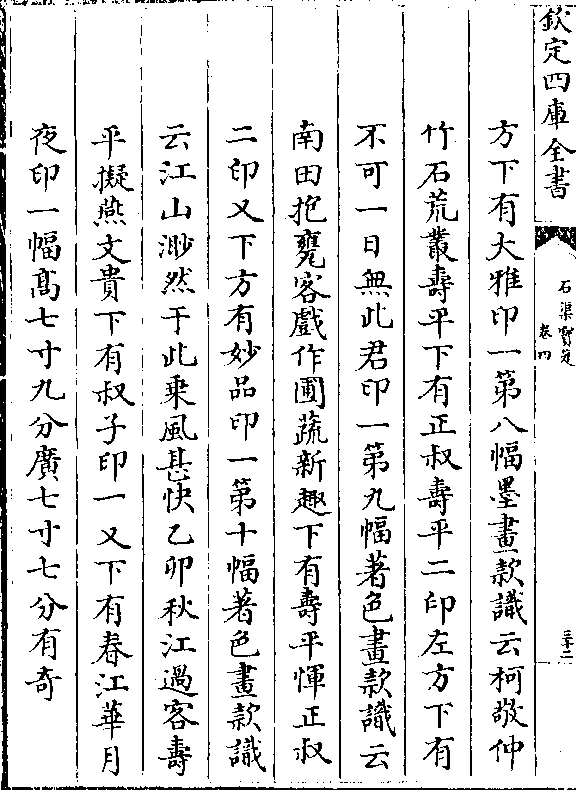 欽定四庫全書
石渠寶笈
卷四
三十二
方下有大雅印一第八幅墨畫款識云柯敬仲
竹石荒叢壽平下有正叔壽平二印左方下有
不可一日無此君印一第九幅著色畫款識云
南田抱甕客戲作圃蔬新趣下有壽平惲正叔
二印又下方有妙品印一第十幅著色畫款識
云江山渺然于此乗風甚快乙卯秋江過客壽
平擬燕文貴下有叔子印一又下有春江華月
夜印一幅髙七寸九分廣七寸七分有奇